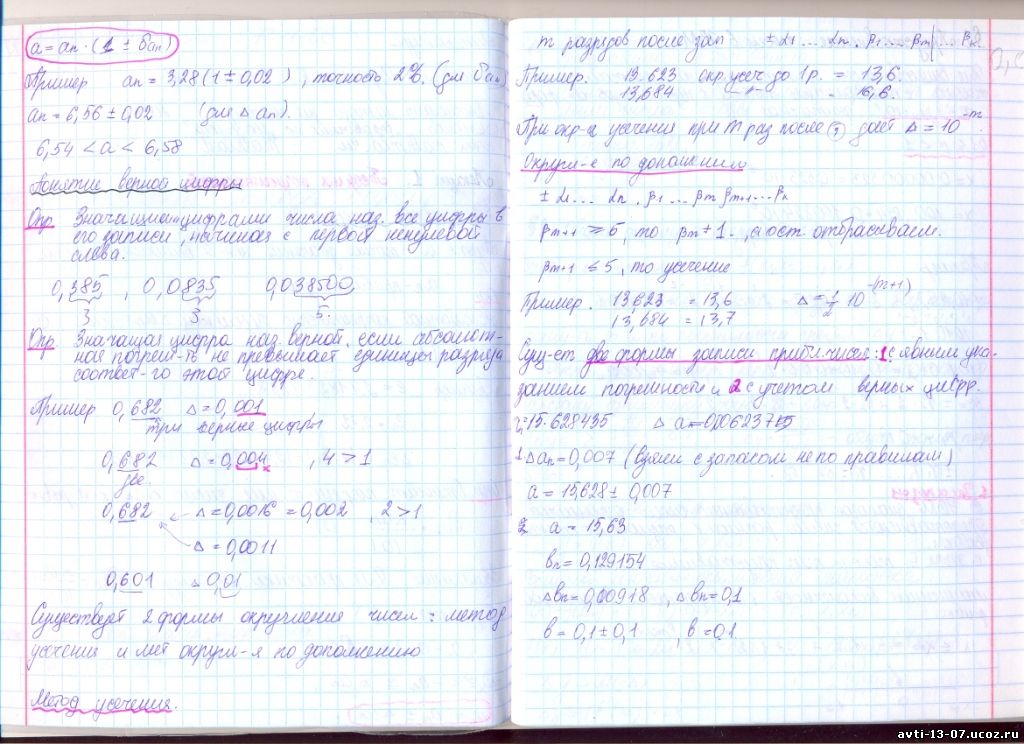 a = aп · (1 ± δaп)
Пример aп = 3,28 (1 ± 0,02) , точность 2%. (для δaп)
aп = 6,56 ± 0,02 (для Δ aп).
6,54 < a < 6,58
Понятие верной цифры
Опр Значащими цифрами числа наз. все цифры в
его записи, начиная с первой ненулевой
слева.
0,385 , 0,0835 0,038500
3 3. 5.
Опр Значащая цифра наз верной, если абсолют-
ная погреш-ть не превышает единицы разряда
соответ-го этой цифре.
Пример 0,682 Δ = 0,001
три верные цифры
0,682 Δ = 0,004 , 4 > 1
две
0,682 Δ = 0,0016 = 0,002 , 2 > 1
Δ = 0,0011
0,601 Δ 0,01
Существует 2 формы округления чисел : метод
усечения и мет округл-я по дополнению
Метод усечения.
m разрядов после зап ± α1 ... αn , β1 ... βm | ... βk
Пример. 13.623 окр усеч до 1р. = 13,6.
13,684 —"— = 13,6.
При окр-и усечения при m раз после (,) дает Δ = 10^-m
Округл-е по дополнению
± α1 ... αn . β1 ... βm βm+1 ... βk
βm+1 ≥ 5, то βm + 1. , а ост. отбрасываем.
βm+1 ≤ 5, то усечение
Пример . 13,623 = 13,6 Δ = 1/2 10^-(m+1)
13,684 = 13,7
Сущ-ет две формы записи прибл. чисел : 1 с явным ука
занием погрешности и 2 с учетом верных цифр.
15.628435 Δ a = 0,0062371
1 Δaп = 0,007 (взяли с запасом не по правилам)
a = 15,628 ± 0,007
2 a = 15,63
bп = 0,129154
Δbп = 0,00918 , Δbп = 0,1
b = 0,1 ± 0,1 , b = 0,1
avti-13-07.ucoz.ru